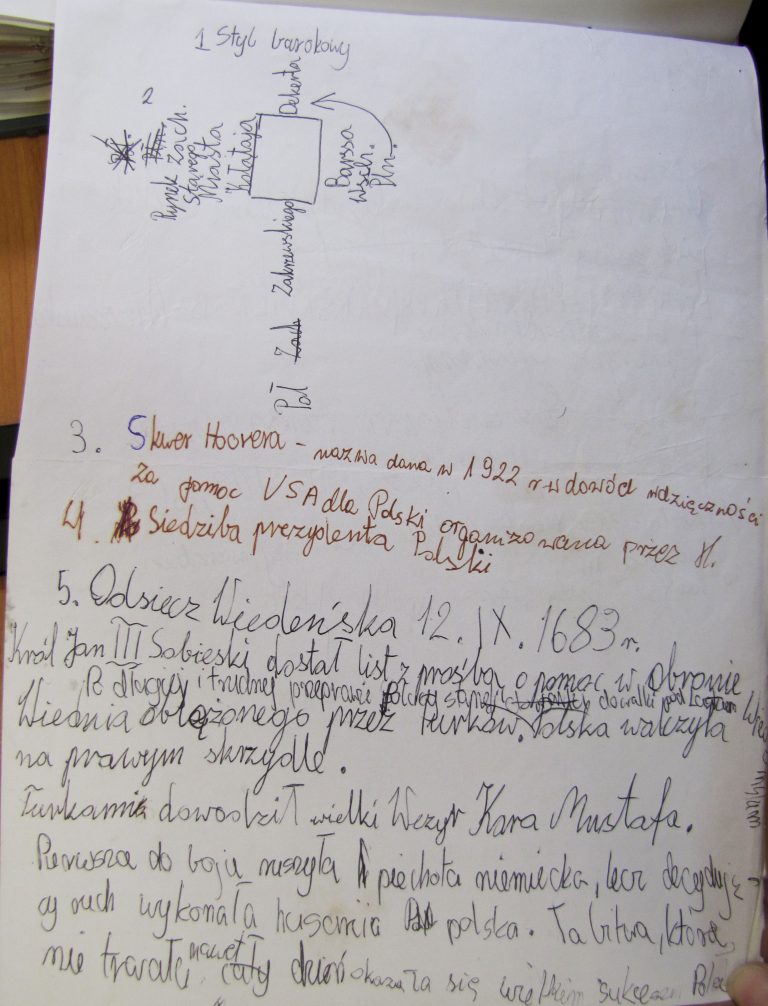 1 Styl barokowy
2
Rynek Zach.
Starego
Miasta
Kołłątaja
Dekerta
Barssa
Wsch.
Płn.
Zakrzewskiego
Zach
Poł
3. Skwer Hoovera - nazwa dana w 1922 r w dowód wdzięczności
za pomoc USA dla Polski organizowana przez H.
4. Siedziba prezydenta Polski
5. Odsiecz Wiedeńska 12. IX. 1683 r.
Król Jan III Sobieski dostał list z prośbą o pomoc w obronie
Po długiej i trudnej przeprawie Polacy stanęli do walki pod
Wiednia oblężonego przez Turków. Polska walczyła
na prawym skrzydle.
Turkami dowodził wielki Wezyr Kara Mustafa.
Pierwsza do boju ruszyła piechota niemiecka, lecz decydują-
cy ruch wykonała husaria polska. Ta bitwa, która
nie trwała nawet cały dzień okazała się wielkim sukcesem